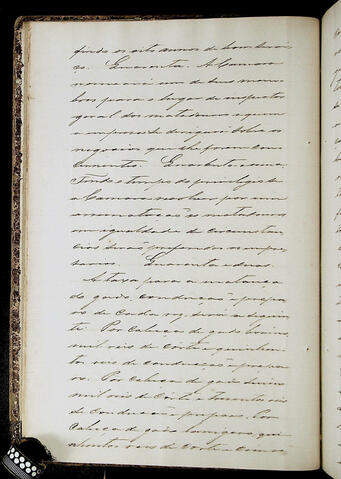 fundo os oito annos de bom servi
ço. Quarenta. A Camara
nomeará um de seus mem
bros para o lugar de inspector
geral dos matadouros a quem
a empresa se dirigirá sobre os
negocios que lhe forem con
cernentes. Quarenta e um.
Findo o tempo do privilegio se
a Camara resolver por em
arrematação os matadouros
em igualdade de circunstan
cias serão preferidos os empre
sarios. Quarenta e dous.
A taxa para a matança
do gado conducção e prepa
ro de cada rez, será a seguin
te: Por cabeça de gado
mil reis de córte e quinhen
tos reis de conducção e prepa
ro. Por cabeça de gado
mil reis de córte e trezentos reis
de conducção e preparo. Por
cabeça de gado lanigero, qui
nhentos reis de córte e